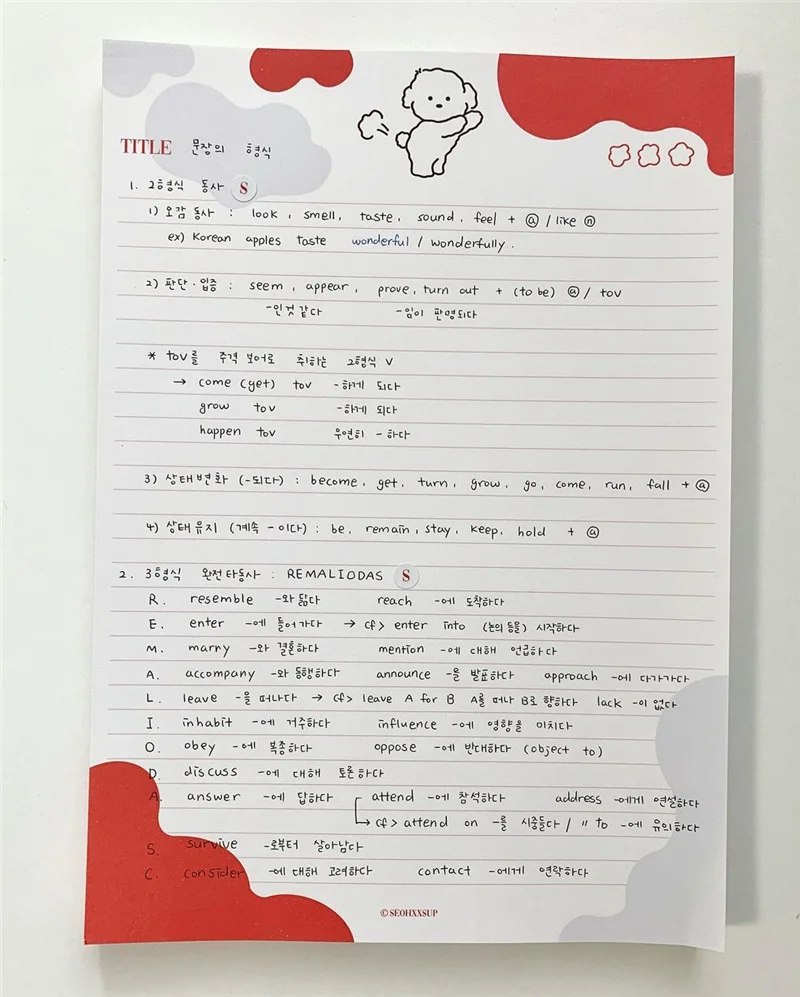 TITLE 문장의 형식
1. 2형식 동사 S
1) 오감 동사 : look, smell, taste, sound, feel + ⓐ / like ⓝ
ex) Korean apples taste wonderful / wonderfully.
2) 판단·입증 : seem, appear, prove, turn out + (to be) ⓐ / tov
-인것 같다 -임이 판명되다
* tov를 주격 보어로 취하는 2형식 V
→ come (get) tov -하게 되다
grow tov -하게 되다
happen tov 우연히 -하다
3) 상태변화 (-되다) : become, get, turn, grow, go, come, run, fall + ⓐ
4) 상태유지 (계속 -이다) : be, remain, stay, keep, hold + ⓐ
2. 3형식 완전타동사 : REMALIODAS S
R. resemble -와 닮다 reach -에 도착하다
E. enter -에 들어가다 → cf> enter into (논의 등을) 시작하다
M. marry -와 결혼하다 mention -에 대해 언급하다
A. accompany -와 동행하다 announce -을 발표하다 approach -에 다가가다
L. leave -을 떠나다 → cf> leave A for B A를 떠나 B로 향하다 lack -이 없다
I. inhabit -에 거주하다 influence -에 영향을 미치다
O. obey -에 복종하다 oppose -에 반대하다 (object to)
D. discuss -에 대해 토론하다
A. answer -에 답하다 attend -에 참석하다 address -에게 연설하다
→ cf> attend on -를 시중들다 / 〃 to -에 유의하다
S. survive -로부터 살아남다
C. consider -에 대해 고려하다 contact -에게 연락하다
© SEOHXXSUP